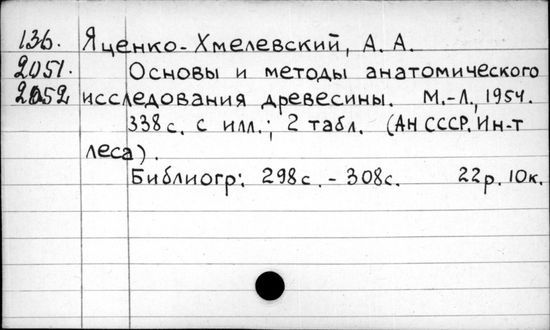 136. Яценко-Хмелевский, А. А.
2051. Основы и методы анатомического
2052 исследования древесины. М.-Л., 1954.
338 с. с илл.; 2 табл. (АН СССР. Ин-т
леса).
Библиогр: 298с. - 308с. 22р. 10к.